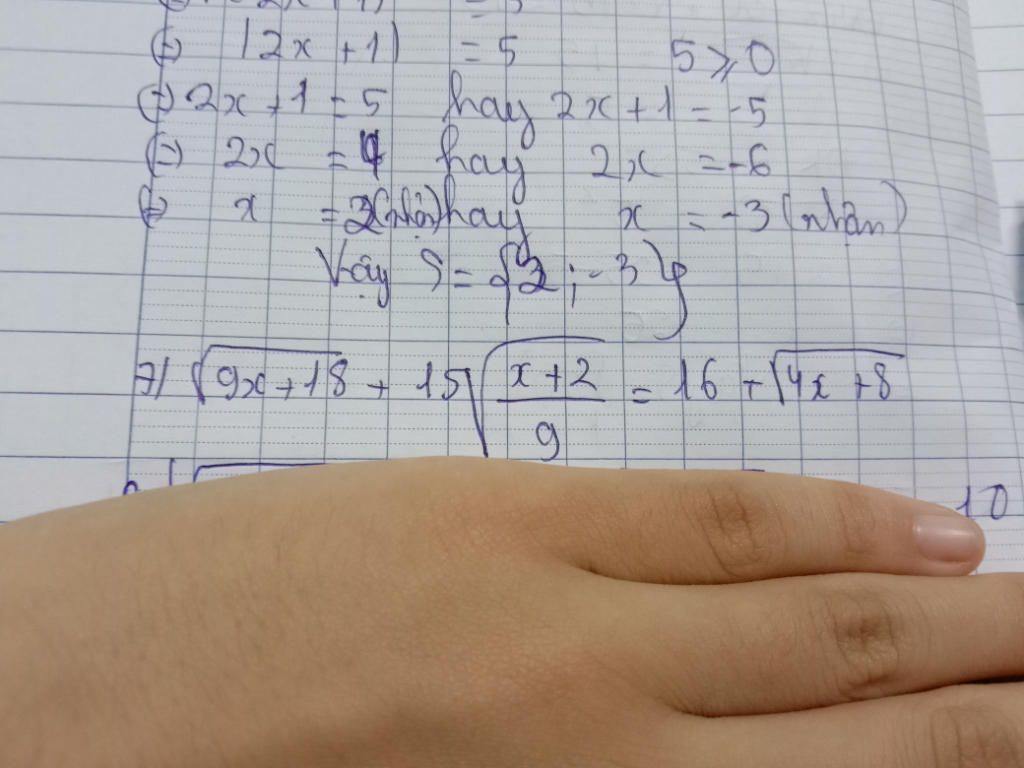 (=) |2x + 1| = 5 5 ⩾ 0
(=) 2x + 1 = 5 hay 2x + 1 = -5
(=) 2x = 4 hay 2x = -6
(=) x = 2 (nhận) hay x = -3 (nhận)
Vậy S = {2 ; -3}
7) √(9x + 18) + 15√((x + 2)/9) = 16 + √(4x + 8)
10